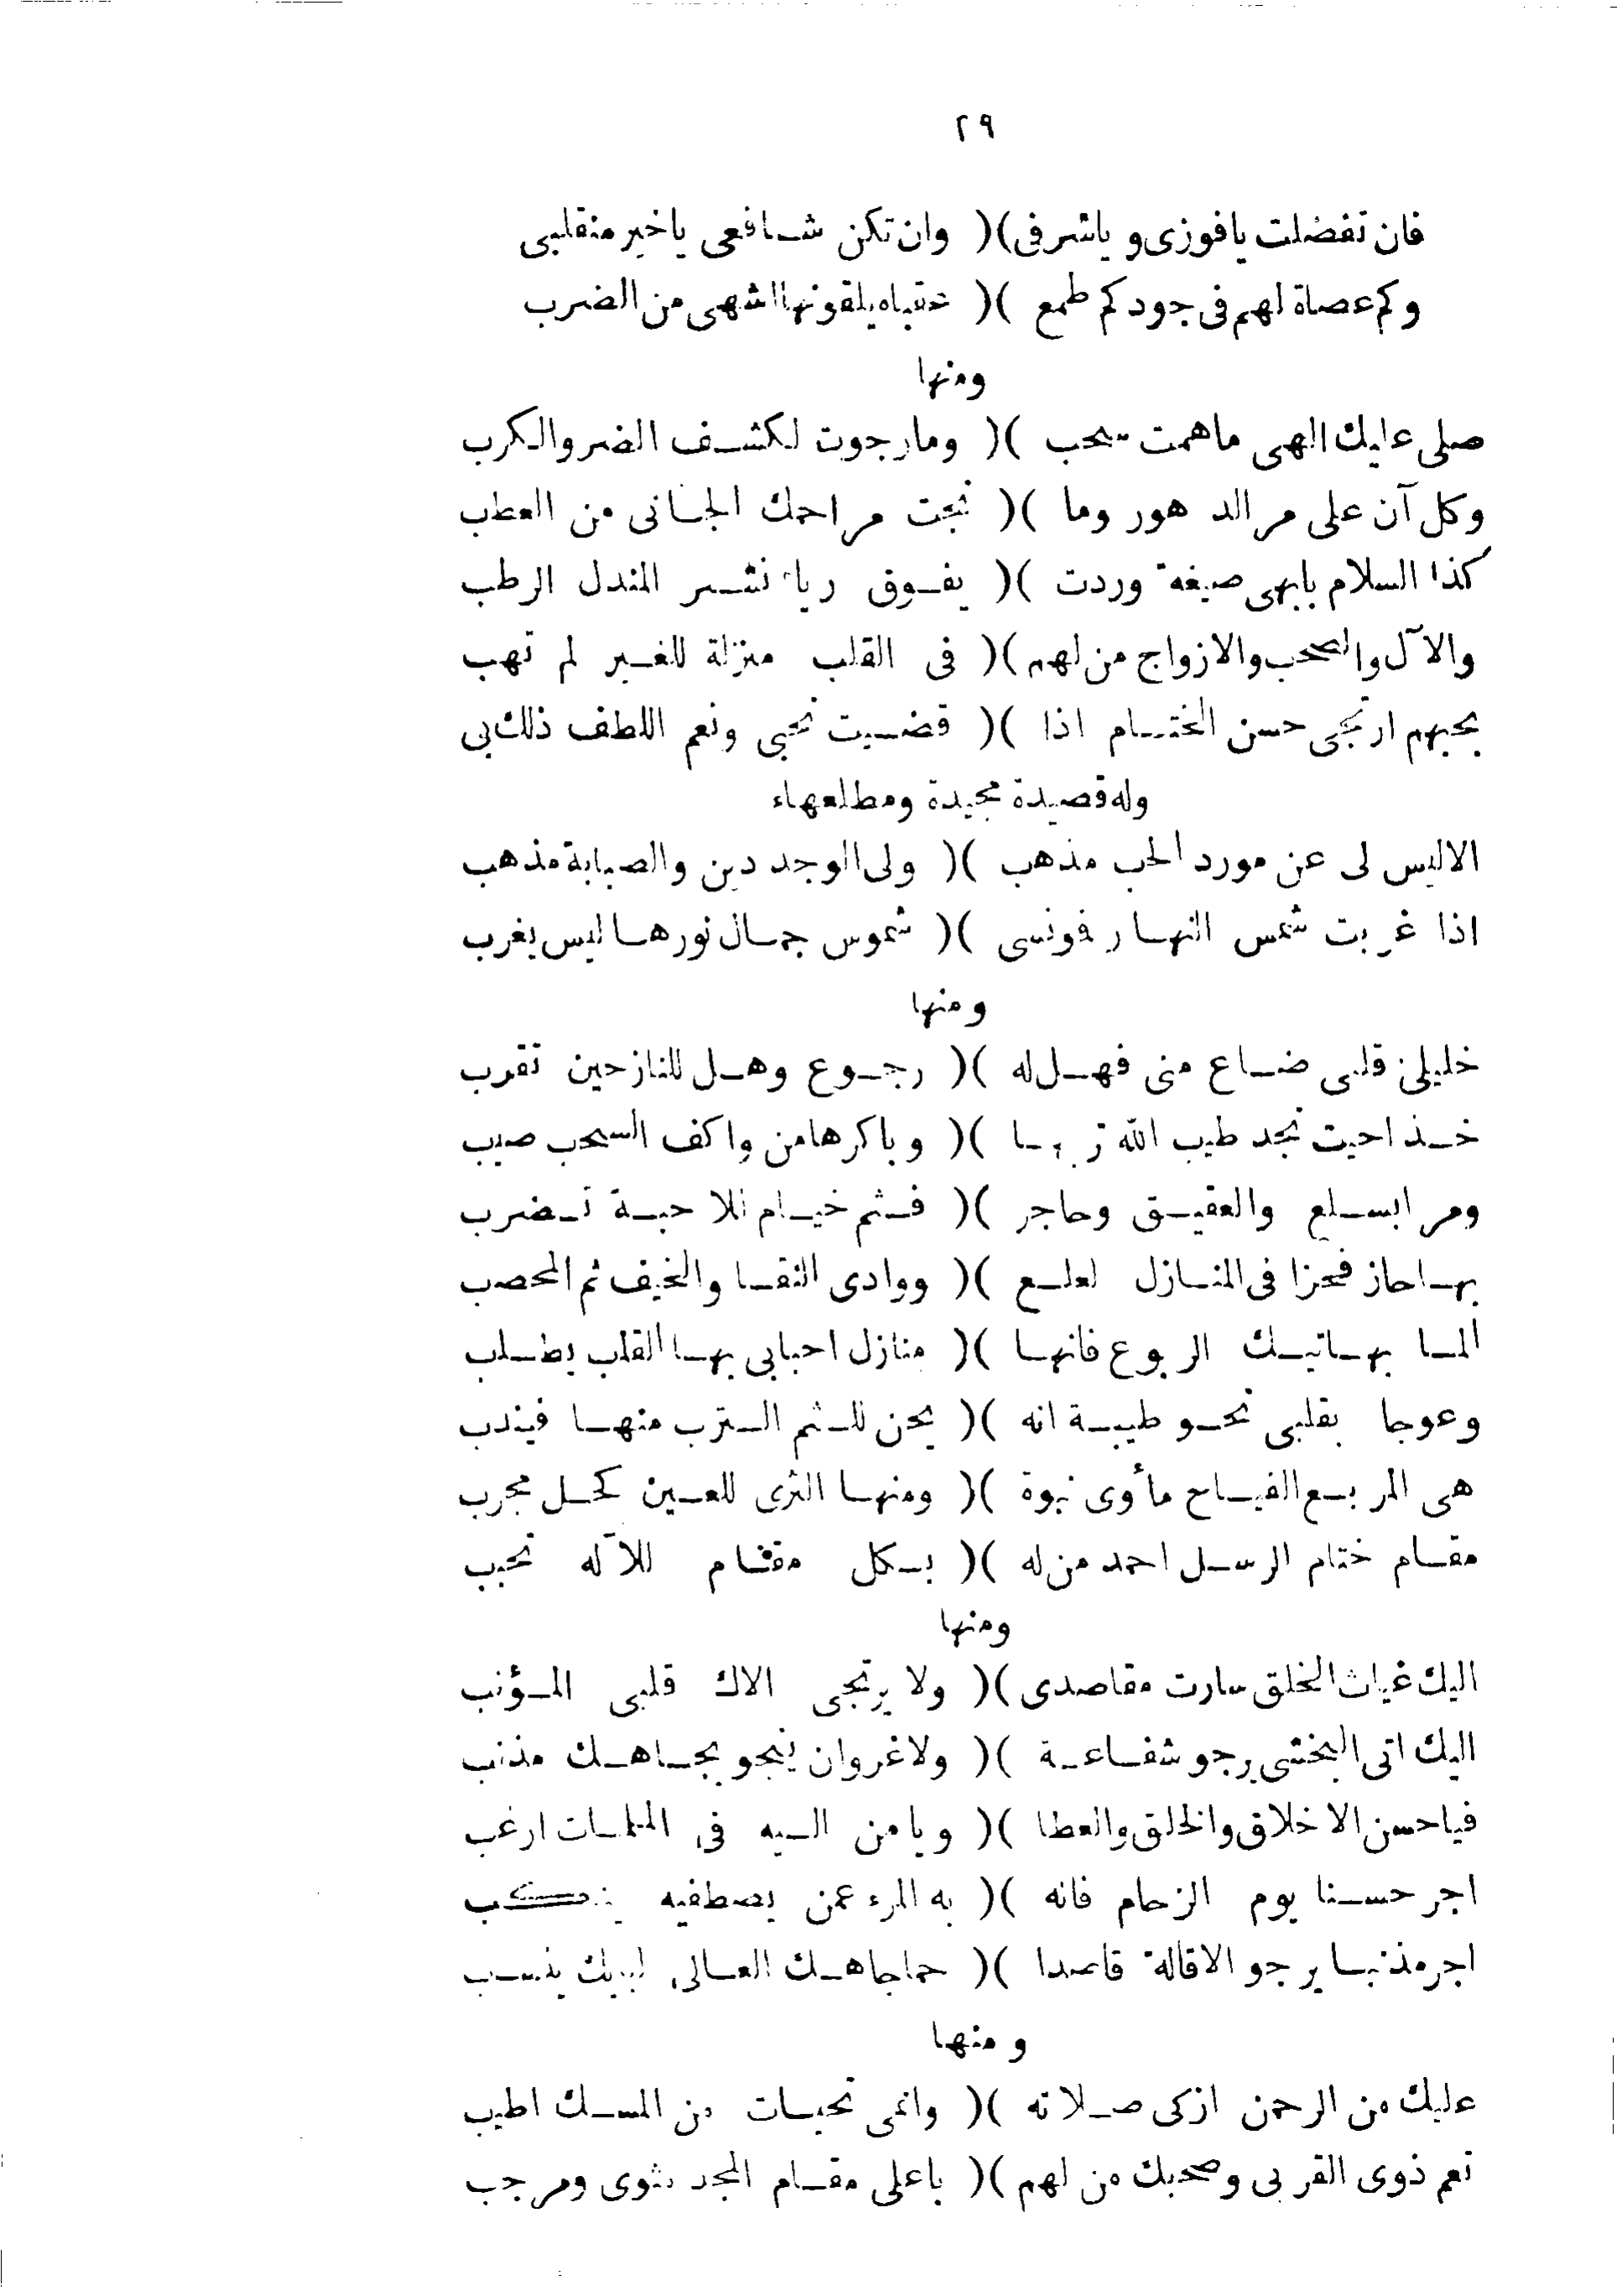 ٢٩
فان تفضلت يافوزى و ياشرفى )( وان تكن شافعى ياخير منقلبى
وكم عصاة لهم فى جودكم طمع )( عقباه يلقونها اشهى من الضرب
ومنها
صلى عليك الهى ماهمت سحب )( ومارجوت لكشف الضر والكرب
وكل آن على مر الدهور وما )( نجت مراحمك الجانى من العطب
كذا السلام بابهى صيغة وردت )( يفوق ريا نشر المندل الرطب
والآل والصحب والازواج من لهم )( فى القلب منزلة للغير لم تهب
بحبهم ارتجى حسن الختام اذا )( قضيت نحبى ونعم اللطف ذلك بى
وله قصيدة مجيدة ومطلعها
الا ليس لى عن مورد الحب مذهب )( ولى الوجد دين والصبابة مذهب
اذا غربت شمس النهار فونسى )( شموس جمال نورها ليس يغرب
ومنها
خليلى قلبى ضاع منى فهل له )( رجوع وهل للنازحين تقرب
خذا حيت نجد طيب الله تربها )( وباكرها من واكف السحب صيب
ومرا بسلع والعقيق وحاجر )( فثم خيام للاحبة تضرب
بها حاز فحزا فى المنازل لعلع )( ووادى النقا والخيف ثم المحصب
الما بهاتيك الربوع فانها )( منازل احبابى بها القلب يطلب
وعوجا بقلبى نحو طيبة انه )( يحن للثم الترب منها فيندب
هى المربع الفياح مأوى نبوة )( ومنها الثرى للعين كحل مجرب
مقام ختام الرسل احمد من له )( بكل مقام للآله تحبب
ومنها
اليك غياث الخلق سارت مقاصدى )( ولا يرتجى الاك قلبى المؤنب
اليك اتى البخشى يرجو شفاعة )( ولاغروان ينجو بجاهك مذنب
فياحسن الاخلاق والخلق والعطا )( ويا من اليه فى الملمات ارغب
اجر حسنا يوم الزحام فانه )( به المرء عمن يصطفيه
اجر مذنبا يرجو الاقالة قاصدا )( حما جاهك العالى
ومنها
عليك من الرحمن ازكى صلاته )( وانمى تحيات من المسك اطيب
نعم ذوى القربى وصحبك من لهم )( باعلى مقام المجد مثوى ومرحب